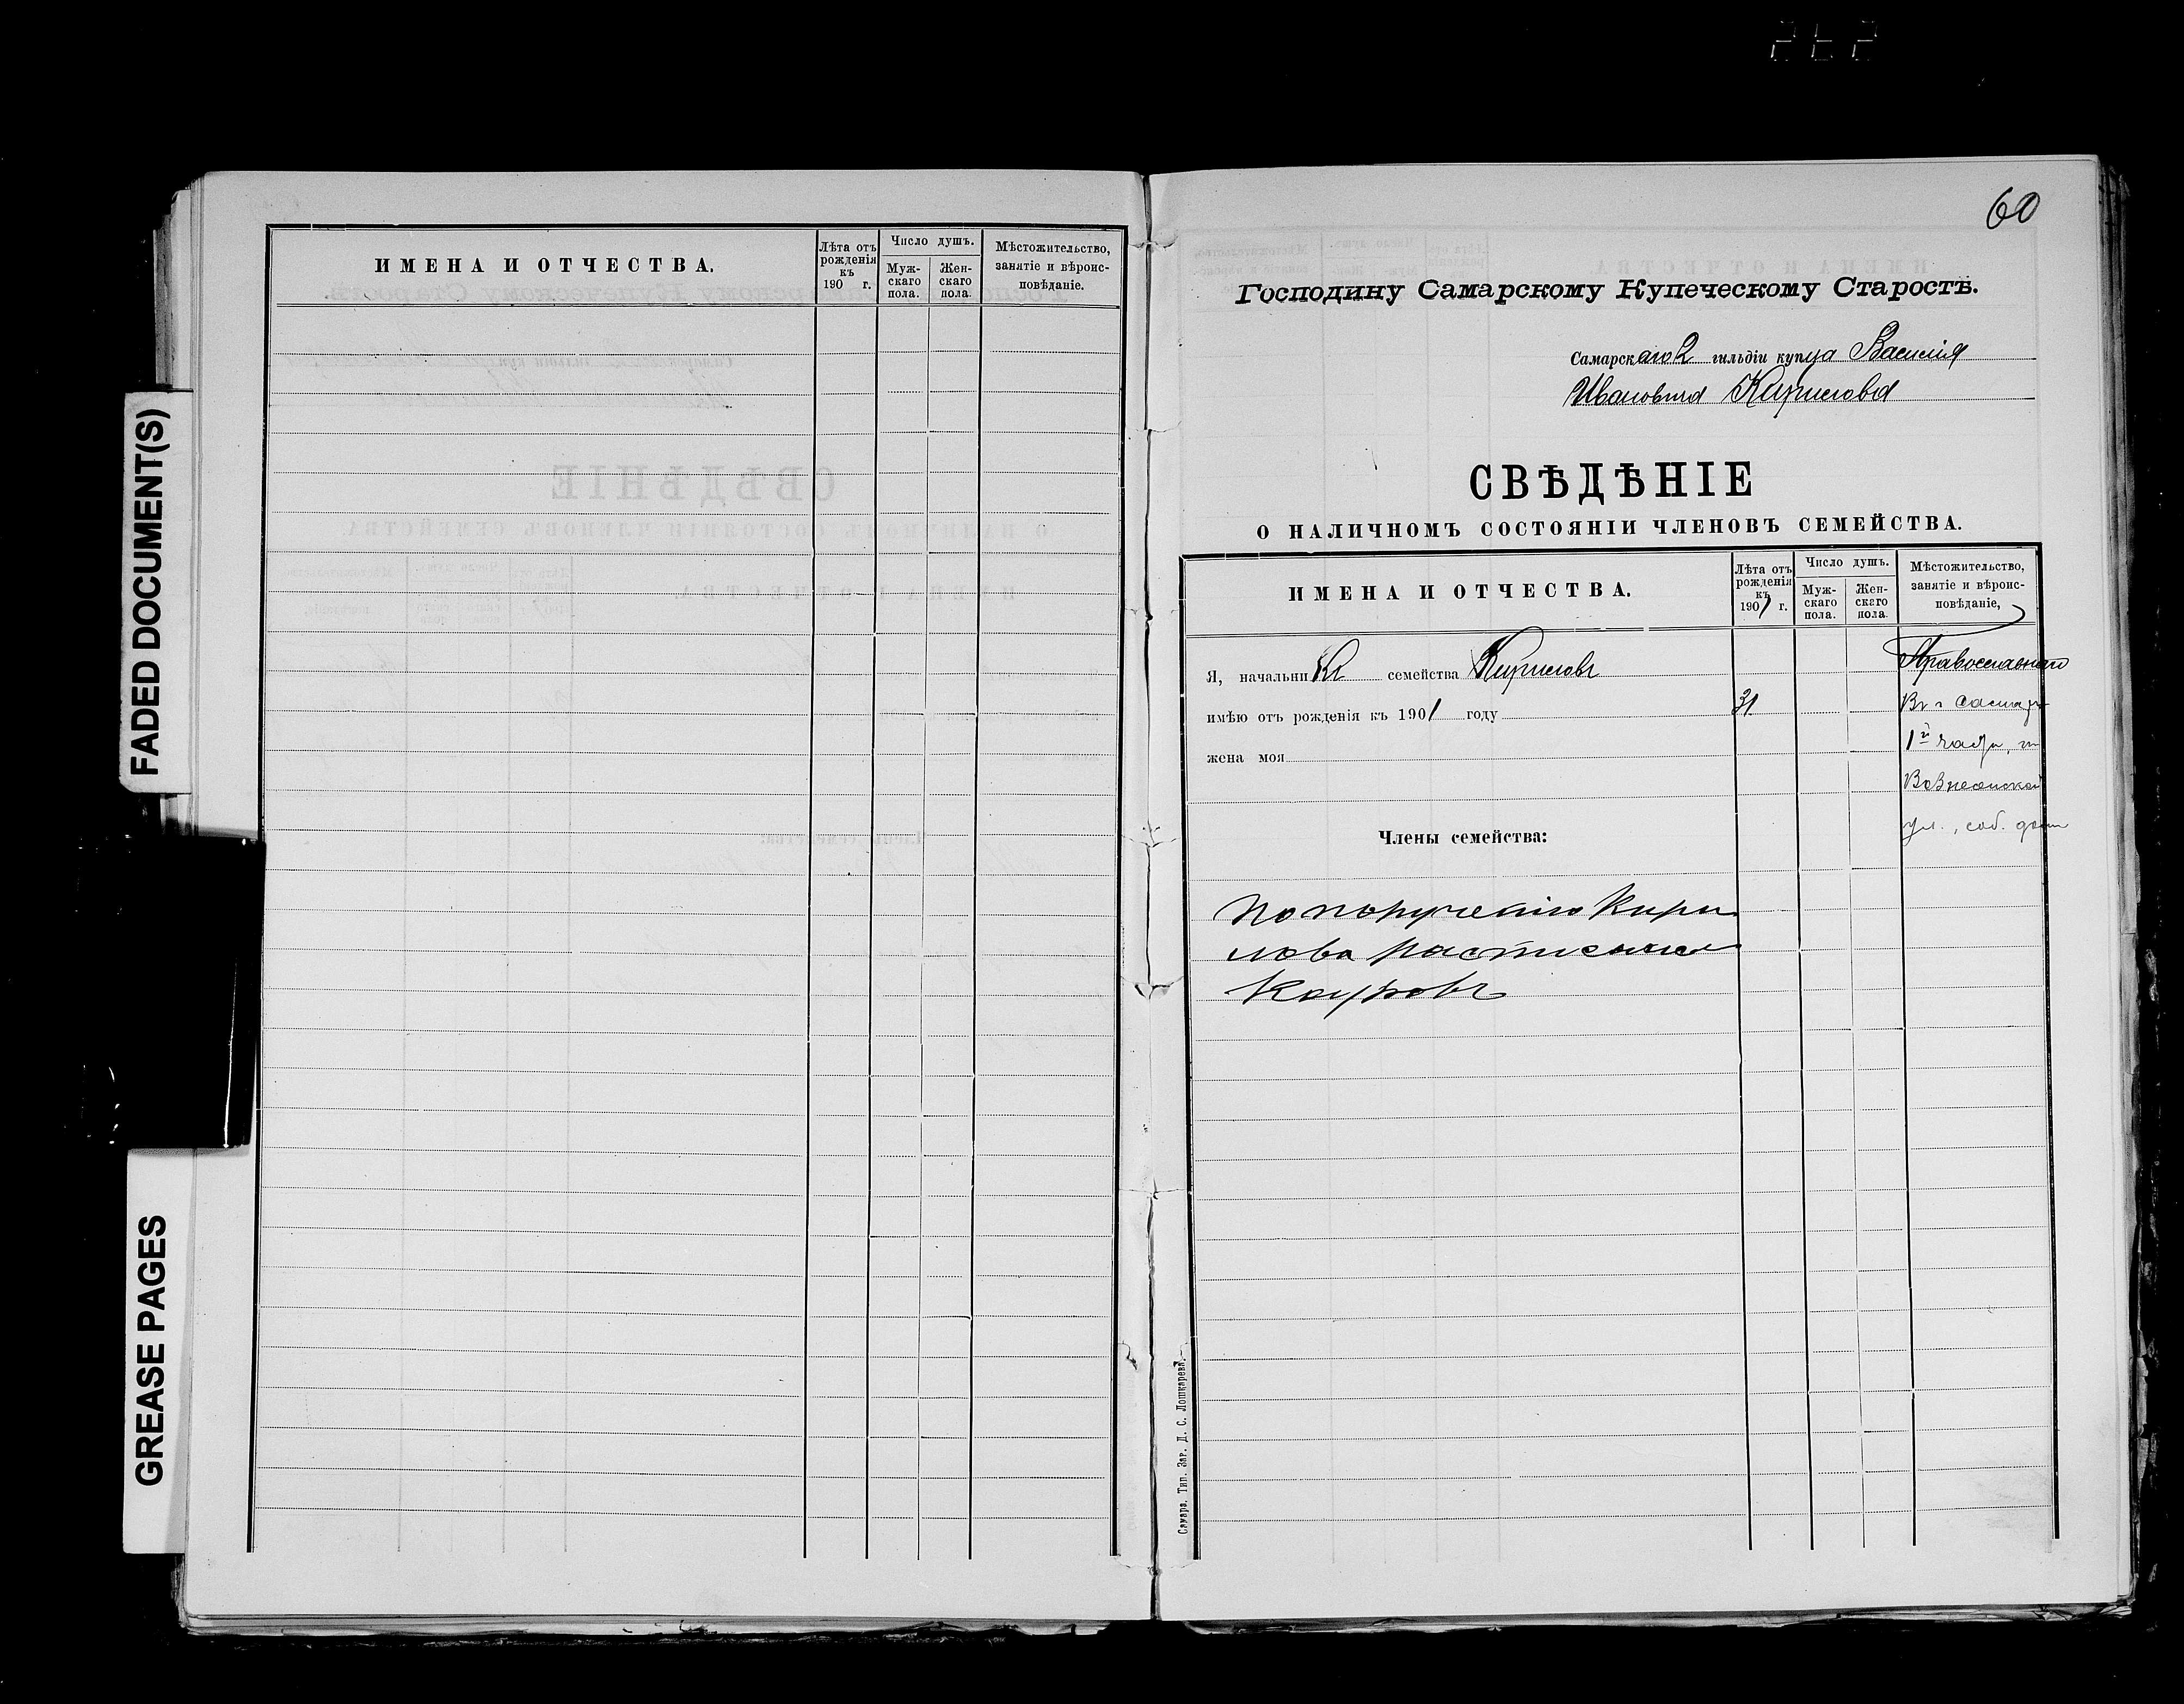 FADED DOCUMENT(S)
GREASE PAGES
ИМЕНА И ОТЧЕСТВА.
Лѣта отъ рожденія къ 190 г.
Число душъ.
Муж-скаго пола.
Жен-скаго пола.
Мѣстожительство, занятіе и вѣроис-повѣданіе.
60
Господину Самарскому Купеческому Старостѣ.
Самарскаго 2 гильдіи купца Василія
Ивановича Кирилова
СВѢДѢНІЕ
О НАЛИЧНОМЪ СОСТОЯНІИ ЧЛЕНОВЪ СЕМЕЙСТВА.
ИМЕНА И ОТЧЕСТВА.
Лѣта отъ рожденія къ 1901 г.
Число душъ.
Муж-скаго пола.
Жен-скаго пола.
Мѣстожительство, занятіе и вѣроис-повѣданіе,
Я, начальникъ семейства Кириловъ
Православнаго
имѣю отъ рожденія къ 1901 году 31
Въ г Самарѣ
жена моя
1й части, по
Вознесенской
ул., соб. домъ
Члены семейства:
По порученію Кири
лова расписался
Самара. Тип. Заг. Д. С. Лошкарева.